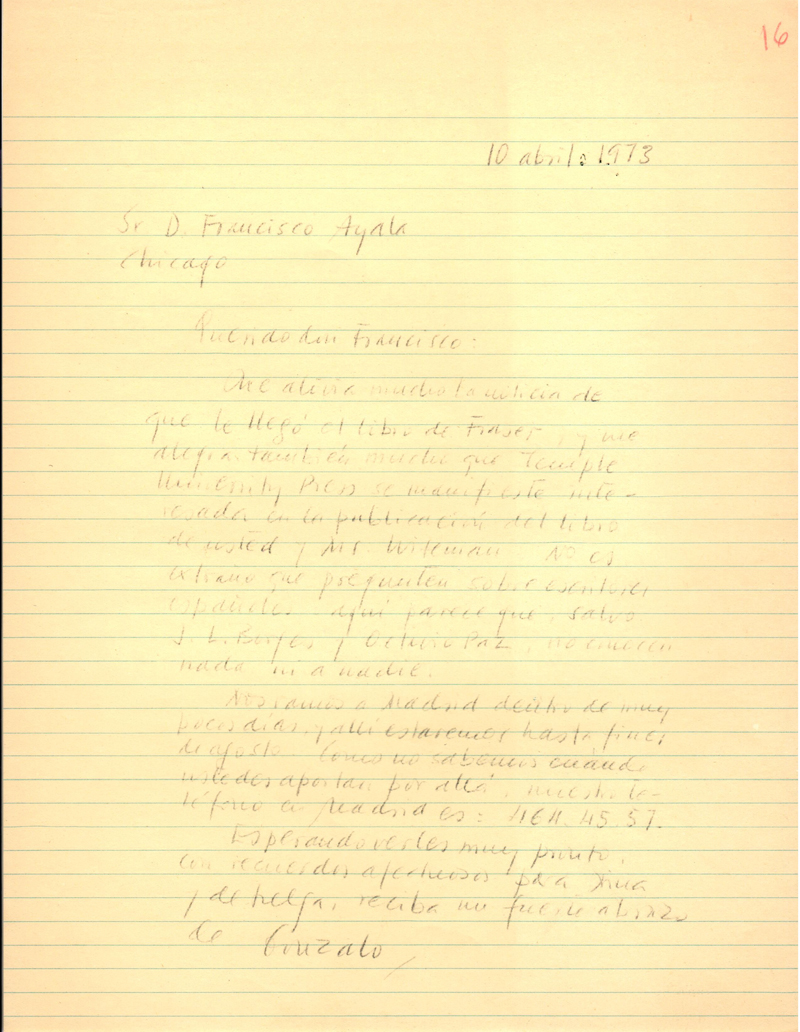 16
10 abril 1973
Sr. D. Francisco Ayala
Chicago
Querido don Francisco:
Me alivia mucho la noticia de
que le llegó el libro de Fraser, y me
alegra también mucho que Temple
University Press se manifieste inte-
resada en la publicación del libro
de usted y Mr. No es
extraño que pregunten sobre escritores
españoles. Aquí parece que, salvo
J. L. Borges y Octavio Paz, no conocen
nada ni a nadie.
Nos vamos a Madrid dentro de muy
pocos días, y allí estaremos hasta fines
de agosto. Como no sabemos cuándo
ustedes aportan por allá, nuestro te-
léfono en Madrid es:
Esperando verles muy pronto,
con recuerdos afectuosos para Nina
y de Helga, reciba un fuerte abrazo
de Gonzalo